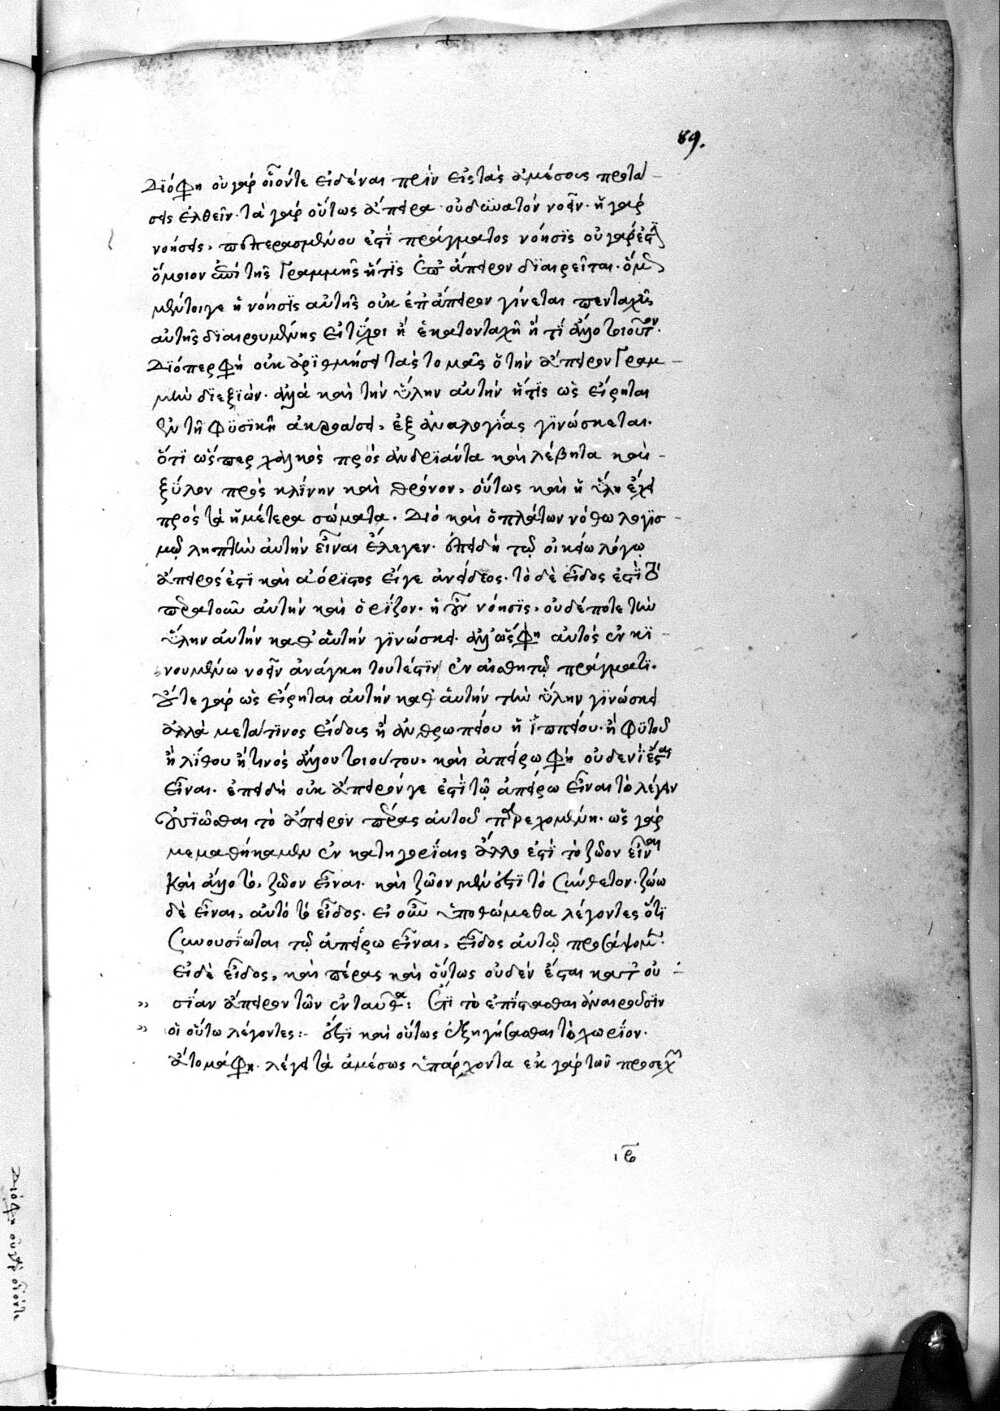 89.
Διό φη οὐ γὰρ οἷόντε εἰδέναι πρὶν εἰς τὰς ἀμέσους προτά-
σεις ἐλθεῖν· τὰ γὰρ οὕτως ἄπειρα οὐ δυνατόν νοεῖν· ἡ γὰρ
νόησις, πεπερασμένου ἐστὶ πράγματος νόησις οὐ γάρ ἐστιν
ὅμοιον ἐπὶ τῆς γραμμῆς ἥτις ἐπ' ἄπειρον διαιρεῖται· ὅμως
μέντοιγε ἡ νόησις αὐτῆς οὐκ ἐπ' ἄπειρον γίνεται πενταχῆς
αὐτῆς διαιρουμένης εἰ τύχοι ἢ ἑκατονταχῆ ἤ τι ἄλλο τοιοῦτον.
Διόπερ φὴ οὐκ ἀριθμήσει τὰς τομὰς ὁ τὴν ἄπειρον γραμ-
μὴν διεξιών· ἀλλὰ καὶ τὴν ὕλην αὐτὴν ἥτις ὡς εἴρηται
ἐν τῆ φυσικῆ ἀκροάσει, ἐξ ἀναλογίας γινώσκεται.
ὅτι ὥσπερ χαλκὸς πρὸς ἀνδριάντα καὶ λέβητα καὶ
ξύλον πρὸς κλίνην καὶ θρόνον, οὕτως καὶ ἡ ὕλη ἔχει
πρὸς τὰ ἡμέτερα σώματα. Διὸ καὶ ὁ πλάτων νόθω λογισ-
μῷ ληπτὴν αὐτὴν εἶναι ἔλεγεν· ἐπειδὴ τῷ οἰκείω λόγω
ἄπειρός ἐστι καὶ ἀόριστος εἴγε ἀνείδεος· τὸ δὲ εἶδος ἐστὶ τὸ
περατοῦν αὐτὴν καὶ ὁρίζον· ἡ οὖν νόησις, οὐδέποτε τὴν
ὕλην αὐτὴν καθ' αὑτὴν γινώσκει· ἀλλ' ὥς φη αὐτὸς ἐν κι-
νουμένω νοεῖν ἀνάγκη τουτέστιν ἐν αἰσθητῷ πράγματι.
οὔτε γὰρ ὡς εἴρηται αὐτὴν καθ' αὑτὴν τὴν ὕλην γινώσκει
ἀλλὰ μετά τινος εἴδους ἢ ἀνθρωπείου ἢ ἱππείου· ἢ φυτοῦ
ἢ λίθου ἤ τινός ἄλλου τοιούτου, καὶ ἀπείρω φὴ οὐδενὶ ἔσται
εἶναι· ἐπειδὴ οὐκ ἄπειρόνγε ἐστὶ τῷ ἀπείρω εἶναι τὸ λέγειν
οὐσιῶσθαι τὸ ἄπειρον πέρας αὐτοῦ παρεχομένη· ὡς γὰρ
μεμαθήκαμεν ἐν κατηγορίαις ἄλλο ἐστὶ τὸ ζῶον εἶναι
καὶ ἄλλο τὸ, ζώον εἶναι· καὶ ζῶον μέν ἐστι τὸ σύνθετον· ζώω
δὲ εἶναι, αὐτὸ τὸ εἶδος. εἰ οὖν ὑποθώμεθα λέγοντες ὅτι
συνουσίωται τῷ ἀπείρω εἶναι, εἶδος αὐτῷ προσάψομεν·
εἰ δὲ εἶδος, καὶ πέρας καὶ οὕτως οὐδὲν ἔσται κατ' οὐ-
σίαν ἄπειρον τῶν ἐνταῦθα: Ἔτι τὸ ἐπίστασθαι ἀναιροῦσιν
οἱ οὕτω λέγοντες:- ἔστι καὶ οὕτως ἐξηγήσασθαι τὸ χωρίον.
ἄτομά φη· λέγει τὰ ἀμέσως ὑπάρχοντα ἐκ γὰρ τῶν προσεχῶν